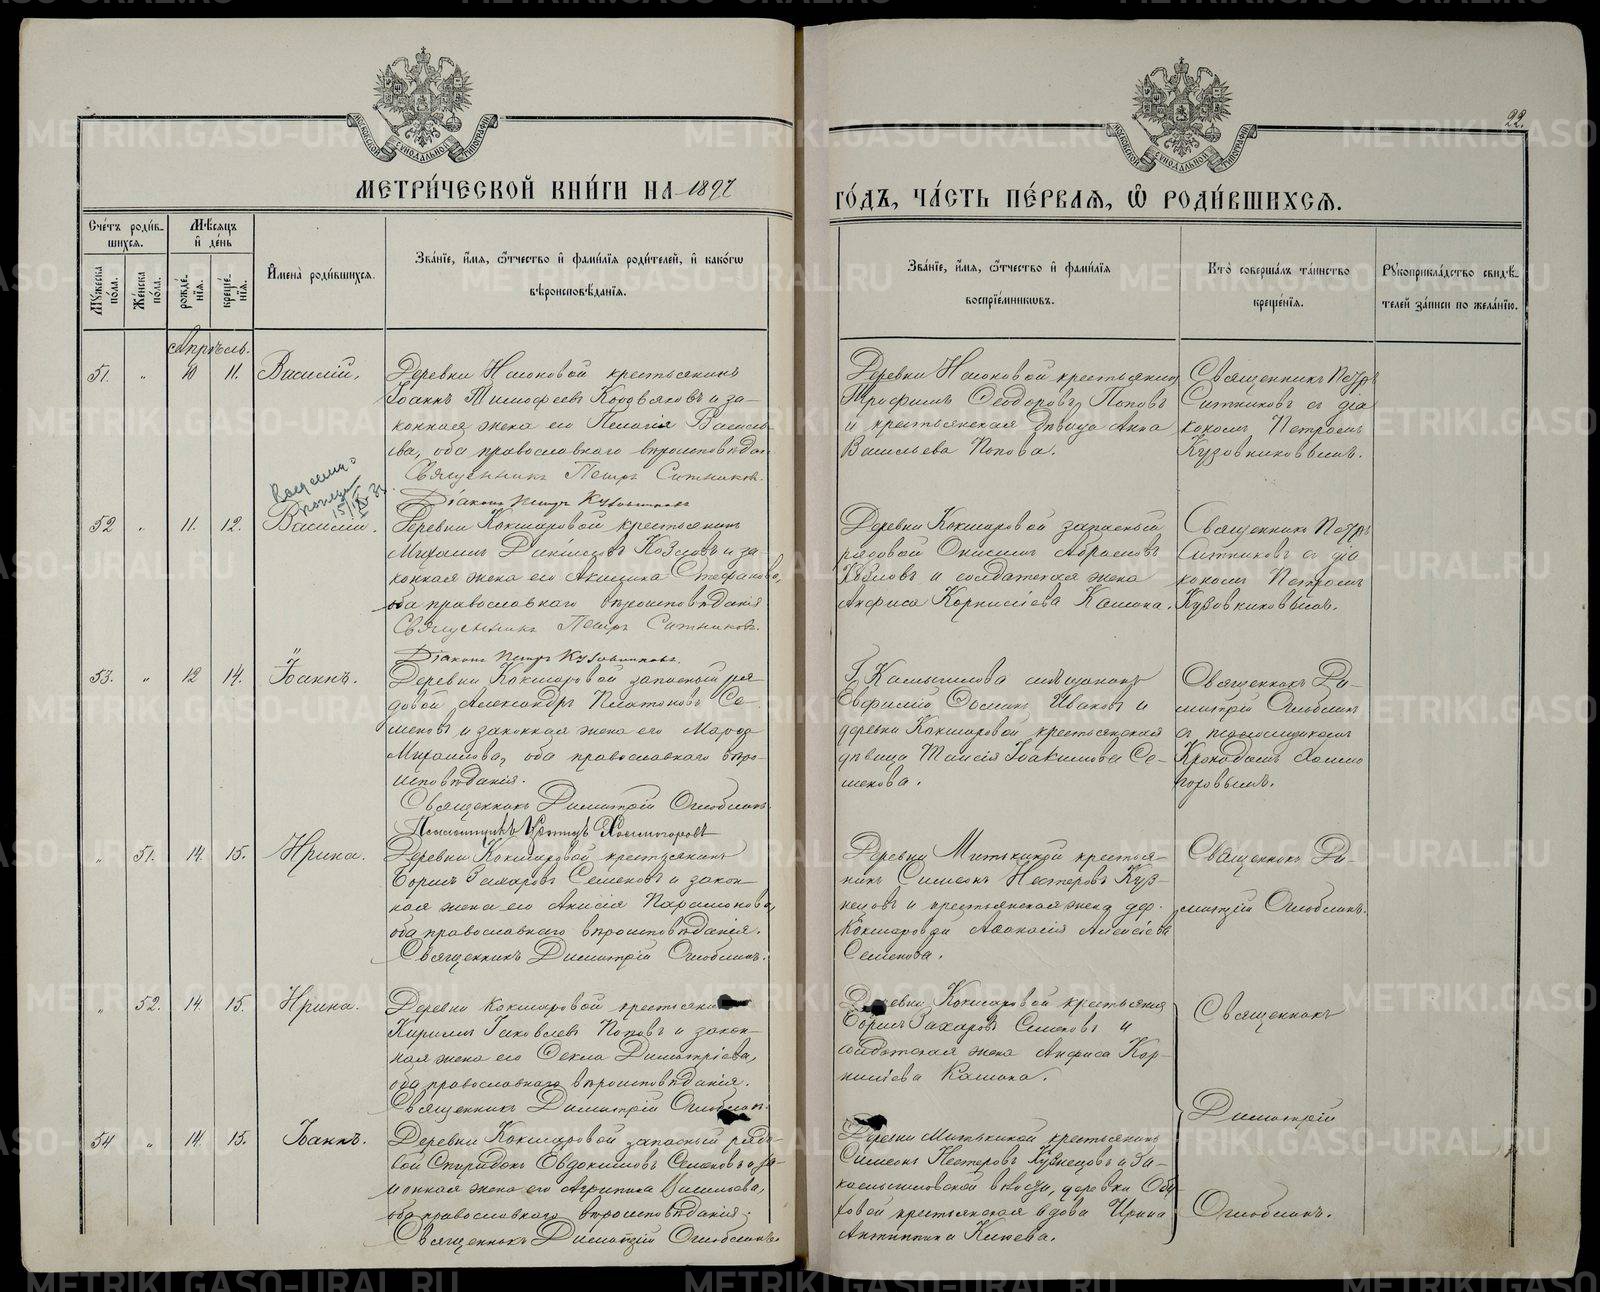 22.
МЕТРИ́ЧЕСКОЙ КНИ́ГИ НА 1897
ГО́ДЪ, ЧА́СТЬ ПЕ́РВАЯ, Ѡ РОДИ́ВШИХСЯ.
Сче́тъ роди́в-
шихся.
Мꙋжеска по́ла.
Же́нска по́ла.
Мѣ́сяцъ
и҆ де́нь
рожде́-
нїя.
креще́-
нїя.
И҆мена̀ роди́вшихся.
Зва́нїе, и҆́мя, ѻ҆́тчество и҆ фами́лїя роди́телей, и҆ како́гѡ
вѣроисповѣ́данїя.
Зва́нїе, и҆́мя, ѻ҆́тчество и҆ фами́лїя
воспрїе́мникѡвъ.
Кто̀ соверша́лъ та́инство
креще́нїя.
Рꙋкоприкла́дство свидѣ́-
телей за́писи по жела́нїю.
Апрѣль.
51. „ 10 11. Василій.
Деревни Насоновой крестьянинъ
Іоаннъ Тимофеевъ Коровяковъ и за-
конная жена его Пелагія Василь-
ева, оба православнаго вѣроисповѣдан.
Священникъ Петръ Ситниковъ.
Діаконъ Петръ Кузовниковъ
Деревни Насоновой крестьянинъ
Трофимъ Ѳеодоровъ Поповъ
и крестьянская дѣвица Анна
Васильева Попова.
Священникъ Петръ
Ситниковъ съ діа
кономъ Петромъ
Кузовниковымъ.
52 „ 11. 12. Василій.
Деревни Кокшаровой крестьянинъ
Михаилъ Козловъ и за-
конная жена его Акилина Стефанова,
оба православнаго вѣроисповѣданія
Священникъ Петръ Ситниковъ.
Діаконъ Петръ Кузовниковъ.
Деревни Кокшаровой запасный
рядовой Онисимъ Абрамовъ
Козловъ и солдатская жена
Анфиса Корниліева Кашина.
Священникъ Петръ
Ситниковъ съ діа
кономъ Петромъ
Кузовниковымъ.
53. „ 12 14. Іоаннъ.
Деревни Кокшаровой запасный ря
довой Александръ Платоновъ Се-
меновъ и законная жена его Марѳа
Михаилова, оба православнаго вѣро-
исповѣданія.
Священникъ Димитрій Оглоблинъ.
Псаломщикъ Хомогоровъ
Г. Камышлова мѣщанинъ
Евфимій Ивановъ и
деревни Кокшаровой крестьянская
дѣвица Таисія Іоакимова Се-
менова.
Священникъ Ди-
митрій Оглоблинъ
съ псаломщикомъ
„ 51. 14. 15. Ирина.
Деревни Кокшаровой крестьянинъ
Борисъ Захаровъ Семеновъ и закон-
ная жена его Анисія Парамонова,
оба православнаго вѣроисповѣданія.
Священникъ Димитрій Оглоблинъ.
Деревни Митькиной крестья-
нинъ Симеонъ Нестеровъ Куз-
нецовъ и крестьянская жена дер.
Кокшаровой Аѳанасія Алексіева
Семенова.
Священникъ Ди-
митрій Оглоблинъ.
„ 52. 14. 15. Ирина.
Деревни Кокшаровой крестьяни
Кириллъ Іаковлевъ Поповъ и закон-
ная жена его Ѳекла Димитріева,
оба православнаго вѣроисповѣданія.
Священникъ Димитрій Оглоблин
Деревни Кокшаровой крестьянин
Борисъ Захаровъ Семеновъ и
солдатская жена Анфиса Кор-
ниліева Кашина.
Священникъ
54 „ 14. 15. Іоаннъ.
Деревни Кокшаровой запасный рядо-
вой Спиридонъ Евдокимовъ Семеновъ и за-
конная жена его Агрипина Васильева,
оба православнаго вѣроисповѣданія.
Священникъ Димитрій Оглоблинъ.
Деревни Митькиной крестьянинъ
Симеонъ Нестеровъ Кузнецовъ и За-
камышловской волости, деревни Обу
ховой крестьянская вдова Ирина
Антипина Князева.
Димитрій
Оглоблинъ.
METRIKI.GASO-URAL.RU